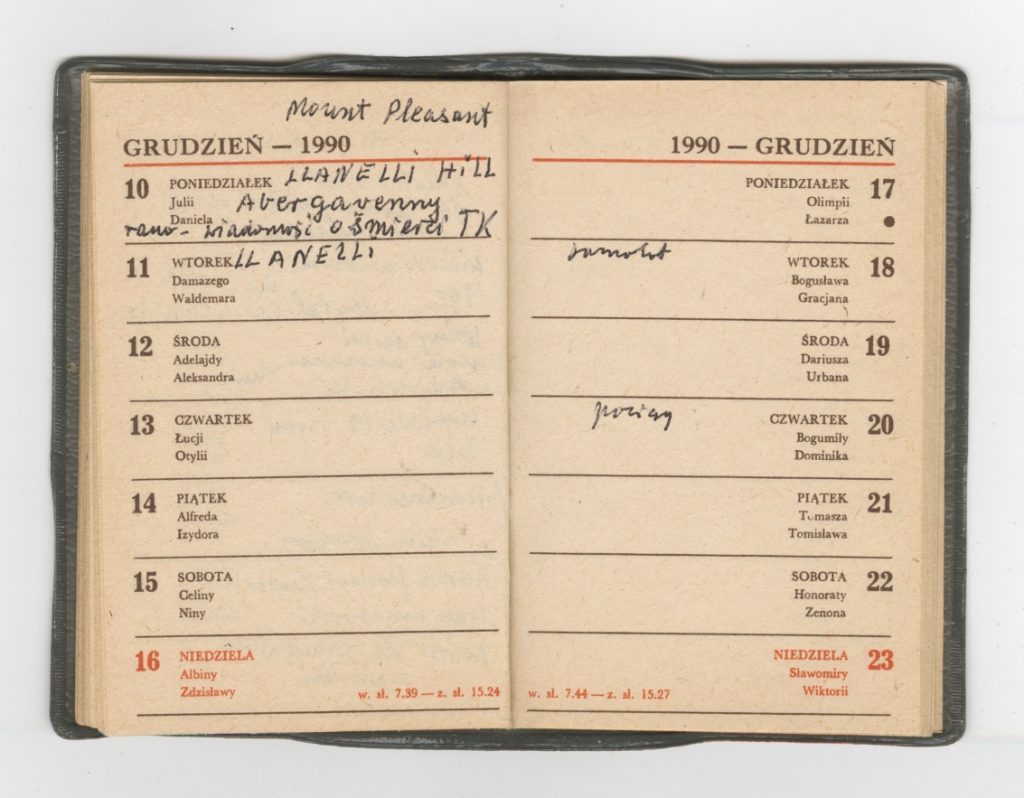 Mount Pleasant
GRUDZIEŃ — 1990
10 PONIEDZIAŁEK LLANELLI HiLL
Julii Abergavenny
Daniela
rano - wiadomość o śmierci TK
11 WTOREK LLANELLI
Damazego
Waldemara
12 ŚRODA
Adelajdy
Aleksandra
13 CZWARTEK
Łucji
Otylii
14 PIĄTEK
Alfreda
Izydora
15 SOBOTA
Celiny
Niny
16 NIEDZIELA
Albiny
Zdzisławy w. sł. 7.39 — z. sł. 15.24
1990 — GRUDZIEŃ
PONIEDZIAŁEK 17
Olimpii
Łazarza
samolot WTOREK 18
Bogusława
Gracjana
ŚRODA 19
Dariusza
Urbana
pociąg CZWARTEK 20
Bogumiły
Dominika
PIĄTEK 21
Tomasza
Tomisława
SOBOTA 22
Honoraty
Zenona
NIEDZIELA 23
Sławomiry
w. sł. 7.44 — z. sł. 15.27 Wiktorii